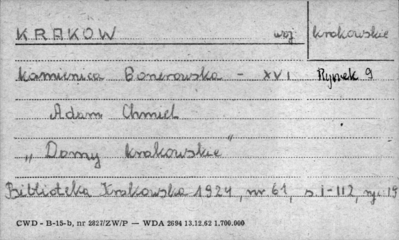 KRAKOW woj krakowskie
Kamienica Bonerowska - XVI Rynek 9
Adam Chmiel
„Domy krakowskie"
Biblioteka Krakowska 1924, nr 61, s. 1-112, ryc. 19
CWD - B-15-b, nr 2827/ZW/P — WDA 2694 13.12.62 1.700.000